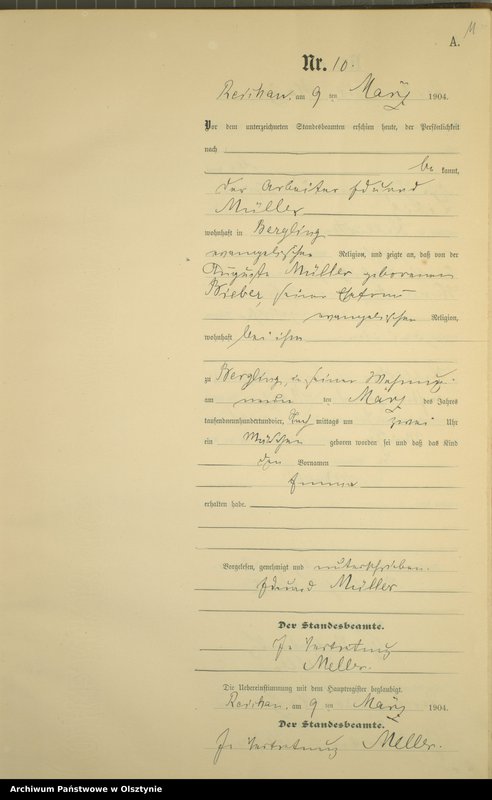 11
A.
Nr. 10.
Reichau, am 9 ten März 1904.
Vor dem unterzeichneten Standesbeamten erschien heute, der Persönlichkeit
nach
be kannt,
der Arbeiter Eduard
Müller
wohnhaft in Bergling
evangelischer Religion, und zeigte an, daß von der
Auguste Müller geborenen
Bieber, seiner Ehefrau
evangelischer Religion,
wohnhaft bei ihm
zu Bergling, in seiner Wohnung
am ten März des Jahres
tausendneunhundertundvier, Nach mittags um zwei Uhr
ein Mädchen geboren worden sei und daß das Kind
den Vornamen
Emma
erhalten habe.
Vorgelesen, genehmigt und unterschrieben.
Eduard Müller
Der Standesbeamte.
In Vertretung
Meller.
Die Uebereinstimmung mit dem Hauptregister beglaubigt.
Reichau, am 9 ten März 1904.
Der Standesbeamte.
In Vertretung Meller.
Archiwum Państwowe w Olsztynie